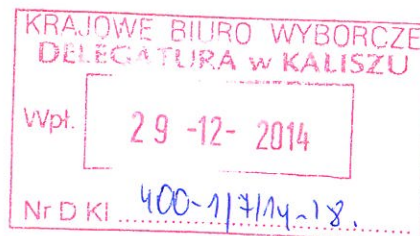 KRAJOWE BIURO WYBORCZE
DELEGATURA w KALISZU
Wpł. 29 -12- 2014
Nr D Kl ........ 400-1/7/14-18.